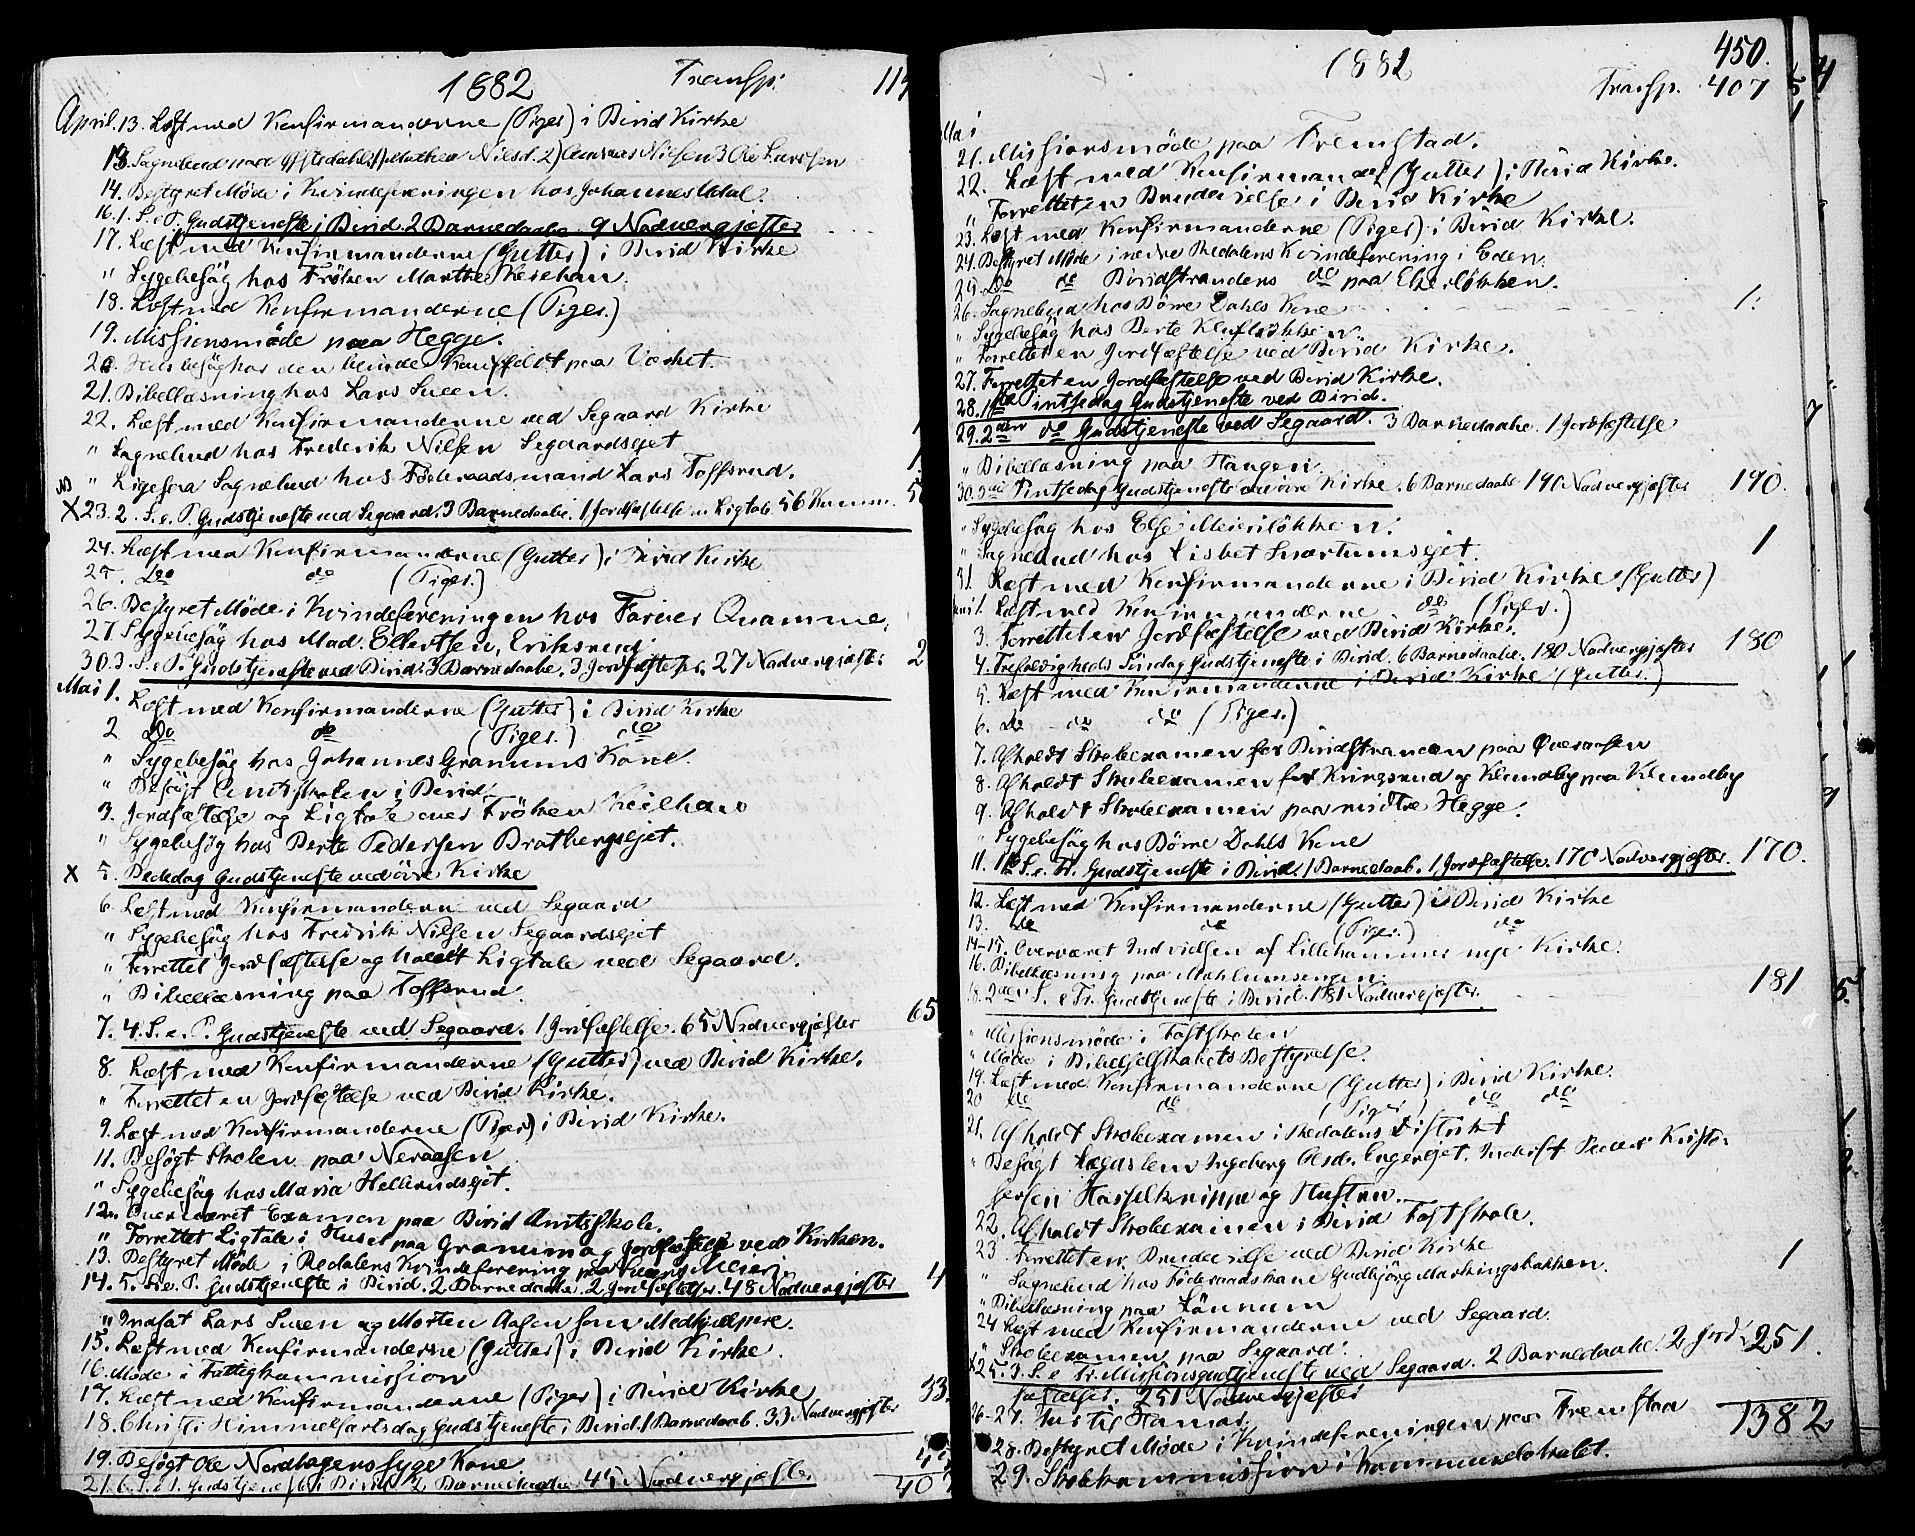 1882 Transp: 114
April. 13. Læst med Konfirmanderne (Piger) i Birid Kirke
13. Sognebud paa 1) Mathea Nilsd. 2) Andreas Nilsen 3 Ole Larssen
14. Bestyret Møde i Kvindeforeningen hos Johannes Udal.
16. 1. S. e. P. Gudstjeneste i Birid. 2 Barnedaabe. 9 Nadvergjæster
17. Læst med Konfirmanderne (Gutter) i Birid Kirke
" Sygebesøg hos Frøken Marthe Keilhau.
18. Læst med Konfirmanderne (Piger.)
19. Missionsmøde paa Hegge.
20. Husbesøg hos den blinde paa Værket.
21. Bibellæsning hos Lars Sveen.
22. Læst med Konfirmanderne ved Segaard Kirke
" Sognebud hos Frederik Nilsen Segaardsejet 1
NB " Ligesaa Sognebud hos Føderaadsmand Lars Toffsrud. 1
X 23. 2. S. e. P. Gudstjeneste ved Segaard. 3 Barnedaabe. 1 Jordfæstelse m Ligtale. 56 Komm. 5
24. Læst med Konfirmanderne (Gutter) i Birid Kirke
25. Do do (Piger.)
26. Bestyret Møde i Kvindeforeningen hos Farver Qvamme.
27. Sygebesøg hos Mad. Ellertsen, Eriksrud
30. 3. S. e. P. Gudstjeneste ved Birid. 3 Barnedaabe. 3 Jordfæstelser. 27 Nadvergjæster 2
Mai 1. Læst med Konfirmanderne (Gutter) i Birid Kirke
2 Do do (Piger.) do
" Sygebesøg hos Johannes Granums Kone.
" Besøgt Amtsskolen i Birid.
3. Jordfæstelse og Ligtale over Frøken Keilhau
" Sygebesøg hos Berte Pedersen Bratbergsejet.
X 5. Bededag Gudstjeneste ved øvre Kirke
6. Læst med Konfirmanderne ved Segaard
" Sygebesøg hos Fredrik Nilsen Segaardsejet
" Forrettet Jordfæstelse og holdt Ligtale ved Segaard.
" Bibellæsning paa Toffsrud.
7. 4. S. e. P. Gudstjeneste ved Segaard. 1 Jordfæstelse. 65 Nadvergjæster 65
8. Læst med Konfirmanderne (Gutter) ved Birid Kirke.
" Forrettet en Jordfæstelse ved Birid Kirke.
9. Læst med Konfirmanderne (Piger) i Birid Kirke.
11. Besøgt Skolen paa Neraasen
" Sygebesøg hos Maria Hellerudsejet.
12. Overværet Examen paa Birid Amtsskole.
" Forrettet Ligtale i Huset paa Granum og Jordfæstelse ved Kirken.
13. Bestyret Møde i Redalens Kvindeforening paa Meieri.
14. 5. S. e. P. Gudstjeneste i Birid. 2 Barnedaabe. 2 Jordfæstelser. 48 Nadvergjæster 4
" Indsat Lars Sveen og Morten Aasen som Medhjælpere.
15. Læst med Konfirmanderne (Gutter) i Birid Kirke.
16. Møde i Fattigkommission
17. Læst med Konfirmanderne (Piger) i Birid Kirke
18. Christi Himmelfartsdag Gudstjeneste i Birid. 1 Barnedaab. 33 Nadvergjæster 33
19. Besøgt Ole Nordhagens syge Kone
21. 6. S. e. P. Gudstjeneste i Birid 2 Barnedaabe 45 Nadvergjæster. 45
407
1882 450.
Transp. 407
Mai
21. Missionsmøde paa Fremstad.
22. Læst med Konfirmander (Gutter) i Birid Kirke.
" Forrettet en Brudevielse i Birid Kirke
23. Læst med Konfirmanderne (Piger) i Birid Kirke.
24. Bestyret Møde i nedre Redalens Kvindeforening i Eden.
25. Do do Biridstrandens do paa Ekerløkken.
26. Sognebud hos Børre Dahls Kone 1.
" Sygebesøg hos Berte Klufløkken.
" Forrettet en Jordfæstelse ved Birid Kirke.
27. Forrettet en Jordfæstelse ved Birid Kirke.
28. 1ste Pintsedag Gudstjeneste ved Birid.
29. 2den do Gudstjeneste ved Segaard. 3 Barnedaabe. 1 Jordfæstelse
" Bibellæsning paa Haugen.
30. 3die Pintsedag Gudstjeneste ved øvre Kirke. 6 Barnedaabe 190 Nadvergjæster 190.
" Sygebesøg hos Else Meieriløkken.
" Sognebud hos Lisbet Snartumsejet. 1
31. Læst med Konfirmanderne i Birid Kirke (Gutter)
Juni 1. Læst med Konfirmanderne do (Piger.)
3. Forrettet en Jordfæstelse ved Birid Kirke.
4. Trefoldigheds Søndag Gudstjeneste i Birid. 6 Barnedaabe. 180 Nadvergjæster 180
5. Læst med Konfirmanderne i Birid Kirke (Gutter.)
6. Do do do (Piger.)
7. Afholdt Skoleexamen for Biridstranden paa Øveraasen
8. Afholdt Skoleexamen for Kringsrud og Klundby paa Klundby
9. Afholdt Skoleexamen paa midtre Hegge.
" Sygebesøg hos Børre Dahls Kone
11. 1ste S. e. Tr. Gudstjeneste i Birid. 1 Barnedaab. 1 Jordfæstelse. 170 Nadvergjæster. 170.
12. Læst med Konfirmanderne (Gutter) i Birid Kirke
13. do do (Piger.) do
14-15. Overværet Indvielsen af Lillehammer nye Kirke.
16. Bibellæsning paa Mæhlumsengen.
18. 2den S. e Tr. Gudstjeneste i Birid. 181 Nadvergjæster. 181
" Missionsmøde i Fastskolen
" Møde i Bibelselskabets Bestyrelse.
19. Læst med Konfirmanderne (Gutter) i Birid Kirke.
20 do do (Piger) do do
21. Afholdt Skoleexamen i Redalens Distrikt
" Besøgt Ingeborg Olsd. Engesejet. Inderst Peder Kristi-
ansen Hasselknippe og Hustru.
22. Afholdt Skoleexamen i Birid Fastskole.
23 Forrettet en Brudevielse ved Birid Kirke
" Sognebud hos Føderaadskone Gudbjørg Marthingsbakken. 1
" Bibellæsning paa Lønnum
24 Læst med Konfirmanderne ved Segaard.
" Skoleexamen paa Segaard.
X 25. 3. S. e Tr. Missionsgudstjeneste ved Segaard. 2 Barnedaabe. 2 Jord- 251.
fæstelser. 251 Nadvergjæster
26-27. Til Hamar.
28. Bestyret Møde i Kvindeforeningen paa Fremstad 1382
29. Skolekommission i Kommunelokalet.